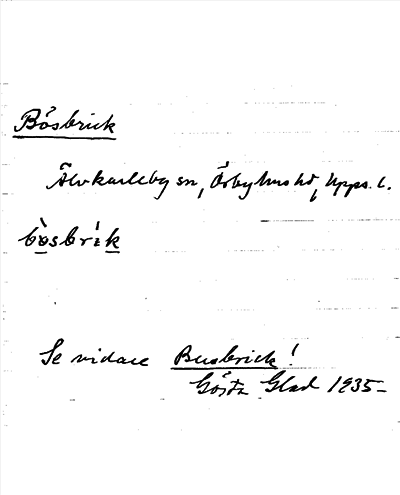 Bösbrick
Älvkarleby sn, Örbyhus hd, Upps. l.
bòsbrìk
Se vidare Busbrick!
Gösta Glad 1935